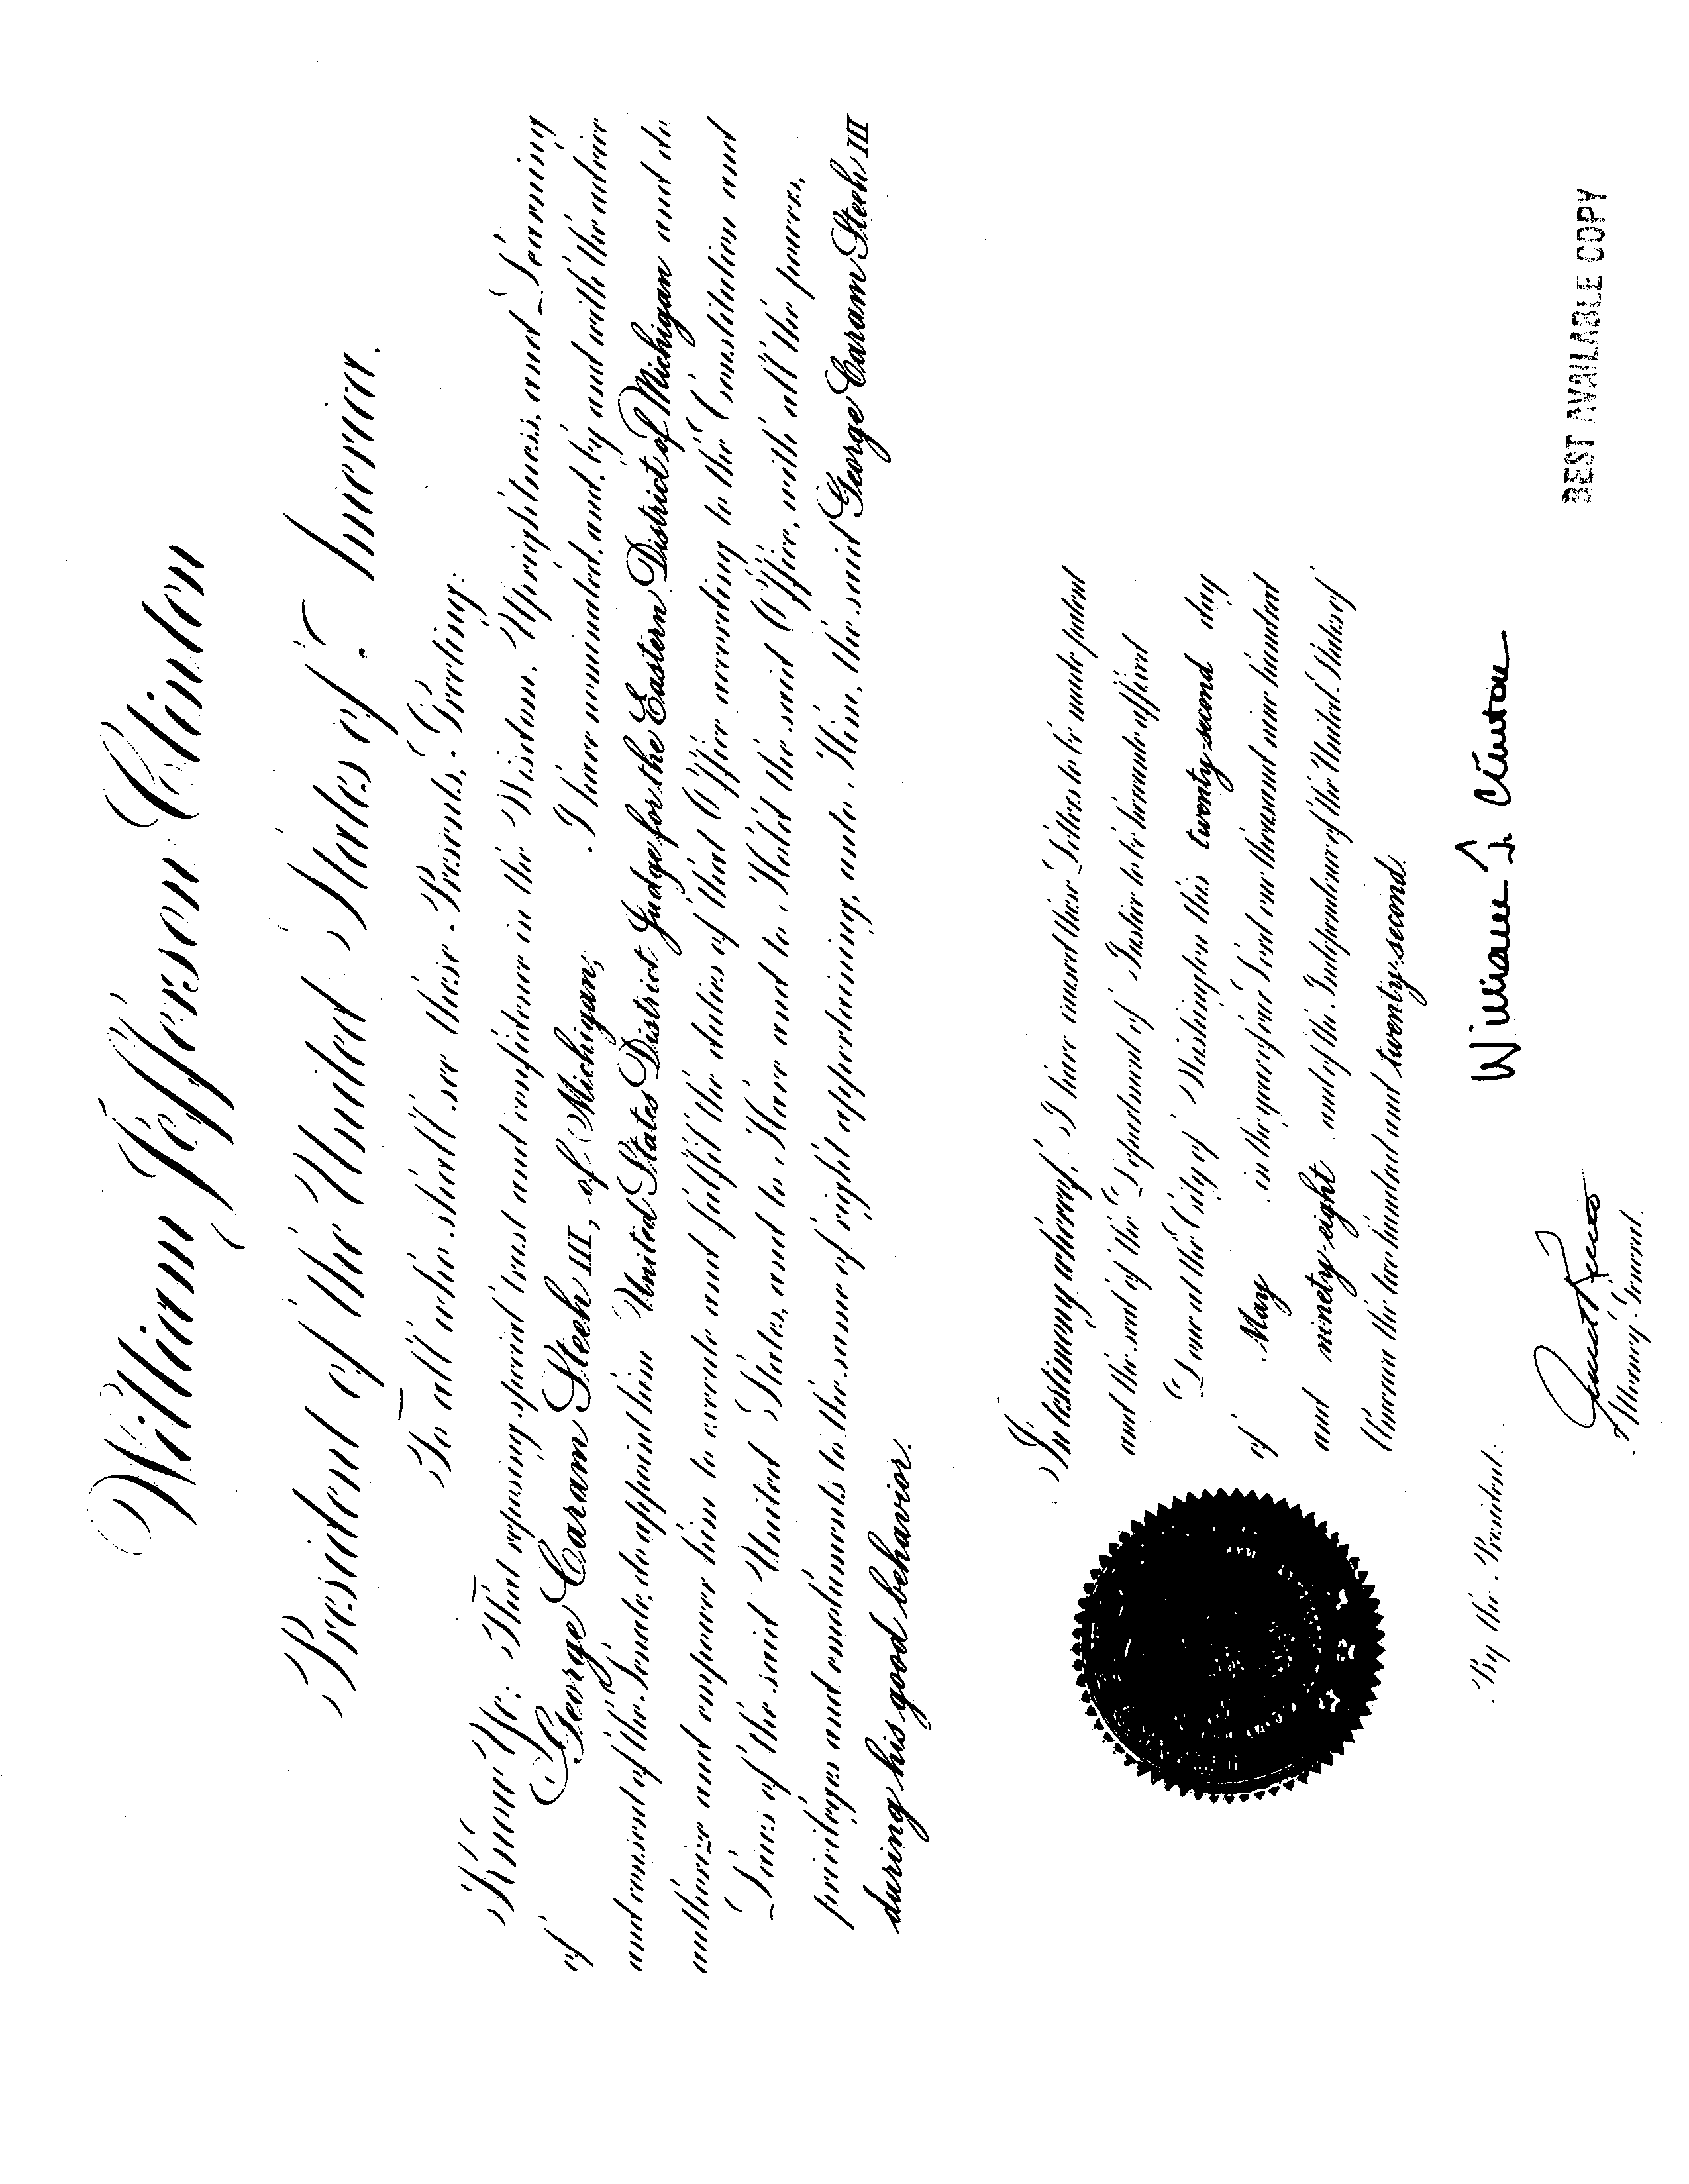 William Jefferson Clinton
President of the United States of America.
To all who shall see these Presents, Greeting:
Know Ye: That reposing special trust and confidence in the Wisdom, Uprightness, and Learning
of George Caram Steeh III, of Michigan, I have nominated, and, by and with the advice
and consent of the Senate, do appoint him United States District Judge for the Eastern District of Michigan and do
authorize and empower him to execute and fulfil the duties of that Office according to the Constitution and
Laws of the said United States, and to Have and to Hold the said Office, with all the powers,
privileges and emoluments to the same of right appertaining, unto Him, the said George Caram Steeh III
during his good behavior.
In testimony whereof, I have caused these Letters to be made patent
and the seal of the Department of Justice to be hereunto affixed.
Done at the City of Washington this twenty-second day
of May in the year of our Lord one thousand nine hundred
and ninety-eight and of the Independence of the United States of
America the two hundred and twenty-second.
By the President:
William J. Clinton
Janet Reno
Attorney General.
BEST AVAILABLE COPY